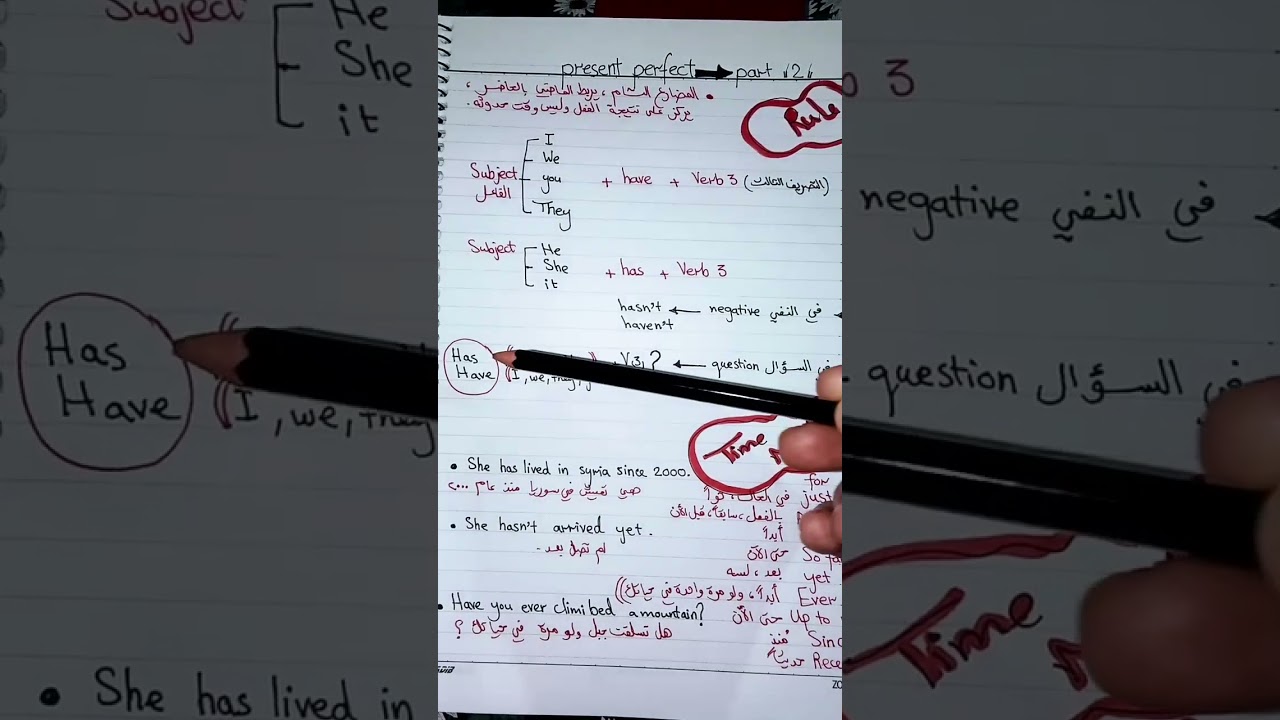 present perfect → part (2)
• المضارع التام ، يربط الماضي بالحاضر ،
يركز على نتيجة الفعل وليس وقت حدوثه.
Rule
I
We
Subject you + have + Verb 3 (التصريف الثالث)
الفاعل
They
Subject He
She + has + Verb 3
it
hasn't ← negative في النفي
haven't
Has
Have (I, we, they, + V3 ? ← question في السؤال
Time
• She has lived in syria since 2000.
هي تعيش في سوريا منذ عام ٢٠٠٠
for
just في الحال ، فوراً
بالفعل ، سابقاً ، قبل الآن
• She hasn't arrived yet.
أبداً
لم تصل بعد.
So fa حتى الآن
yet بعد ، لسه
Ever أبداً ، ولو مرة واحدة في حياتك))
• Have you ever climbed a mountain?
Up to حتى الآن
هل تسلقت جبل ولو مرة في حياتك ؟
Sinc منذ
Rece حديثاً